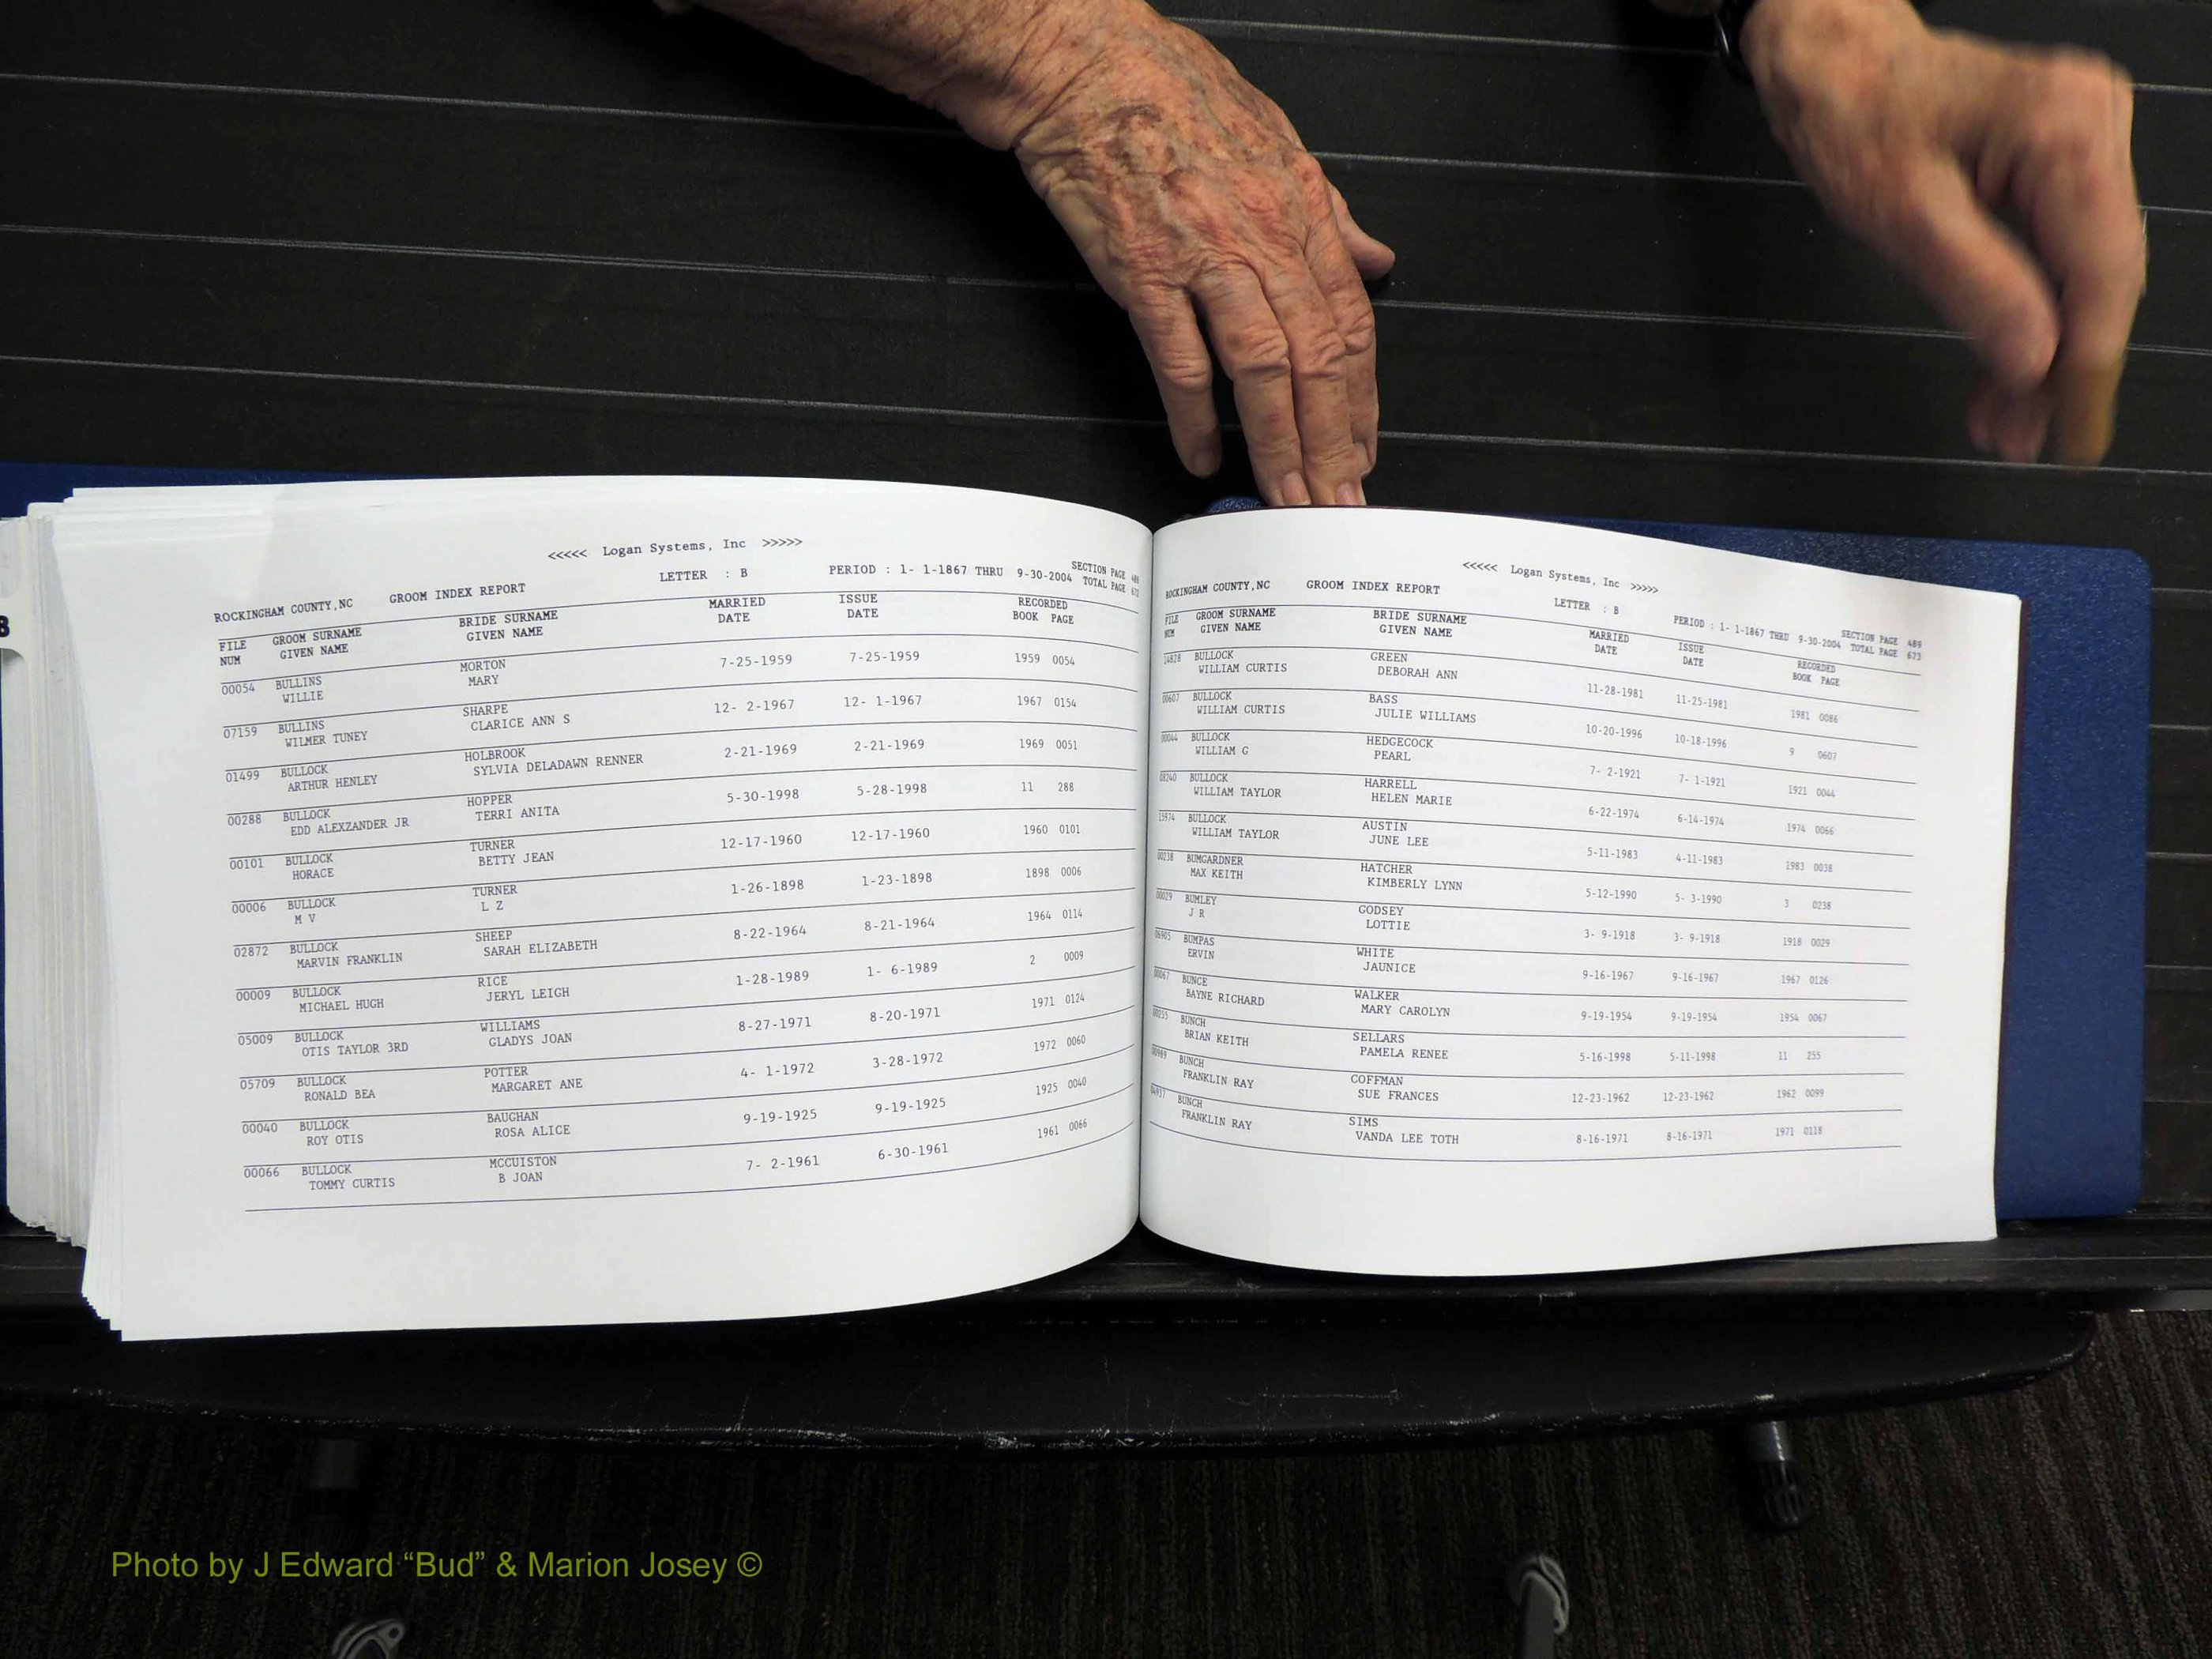 <<<<< Logan Systems, Inc >>>>>
ROCKINGHAM COUNTY,NC GROOM INDEX REPORT LETTER : B PERIOD : 1- 1-1867 THRU 9-30-2004 SECTION PAGE
TOTAL PAGE
FILE GROOM SURNAME BRIDE SURNAME MARRIED ISSUE RECORDED
NUM GIVEN NAME GIVEN NAME DATE DATE BOOK PAGE
00054 BULLINS MORTON 7-25-1959 7-25-1959 1959 0054
WILLIE MARY
07159 BULLINS SHARPE 12- 2-1967 12- 1-1967 1967 0154
WILMER TUNEY CLARICE ANN S
01499 BULLOCK HOLBROOK 2-21-1969 2-21-1969 1969 0051
ARTHUR HENLEY SYLVIA DELADAWN RENNER
00288 BULLOCK HOPPER 5-30-1998 5-28-1998 11 288
EDD ALEXZANDER JR TERRI ANITA
00101 BULLOCK TURNER 12-17-1960 12-17-1960 1960 0101
HORACE BETTY JEAN
00006 BULLOCK TURNER 1-26-1898 1-23-1898 1898 0006
M V L Z
02872 BULLOCK SHEEP 8-22-1964 8-21-1964 1964 0114
MARVIN FRANKLIN SARAH ELIZABETH
00009 BULLOCK RICE 1-28-1989 1- 6-1989 2 0009
MICHAEL HUGH JERYL LEIGH
05009 BULLOCK WILLIAMS 8-27-1971 8-20-1971 1971 0124
OTIS TAYLOR 3RD GLADYS JOAN
05709 BULLOCK POTTER 4- 1-1972 3-28-1972 1972 0060
RONALD BEA MARGARET ANE
00040 BULLOCK BAUGHAN 9-19-1925 9-19-1925 1925 0040
ROY OTIS ROSA ALICE
00066 BULLOCK MCCUISTON 7- 2-1961 6-30-1961 1961 0066
TOMMY CURTIS B JOAN
<<<<< Logan Systems, Inc >>>>>
ROCKINGHAM COUNTY,NC GROOM INDEX REPORT LETTER : B PERIOD : 1- 1-1867 THRU 9-30-2004 SECTION PAGE 489
TOTAL PAGE 673
FILE GROOM SURNAME BRIDE SURNAME MARRIED ISSUE RECORDED
NUM GIVEN NAME GIVEN NAME DATE DATE BOOK PAGE
14828 BULLOCK GREEN 11-28-1981 11-25-1981 1981 0086
WILLIAM CURTIS DEBORAH ANN
00607 BULLOCK BASS 10-20-1996 10-18-1996 9 0607
WILLIAM CURTIS JULIE WILLIAMS
00044 BULLOCK HEDGECOCK 7- 2-1921 7- 1-1921 1921 0044
WILLIAM G PEARL
08240 BULLOCK HARRELL 6-22-1974 6-14-1974 1974 0066
WILLIAM TAYLOR HELEN MARIE
15974 BULLOCK AUSTIN 5-11-1983 4-11-1983 1983 0038
WILLIAM TAYLOR JUNE LEE
00238 BUMGARDNER HATCHER 5-12-1990 5- 3-1990 3 0238
MAX KEITH KIMBERLY LYNN
00029 BUMLEY GODSEY 3- 9-1918 3- 9-1918 1918 0029
J R LOTTIE
06905 BUMPAS WHITE 9-16-1967 9-16-1967 1967 0126
ERVIN JAUNICE
00067 BUNCE WALKER 9-19-1954 9-19-1954 1954 0067
BAYNE RICHARD MARY CAROLYN
00255 BUNCH SELLARS 5-16-1998 5-11-1998 11 255
BRIAN KEITH PAMELA RENEE
00989 BUNCH COFFMAN 12-23-1962 12-23-1962 1962 0099
FRANKLIN RAY SUE FRANCES
04937 BUNCH SIMS 8-16-1971 8-16-1971 1971 0118
FRANKLIN RAY VANDA LEE TOTH
Photo by J Edward “Bud” & Marion Josey ©